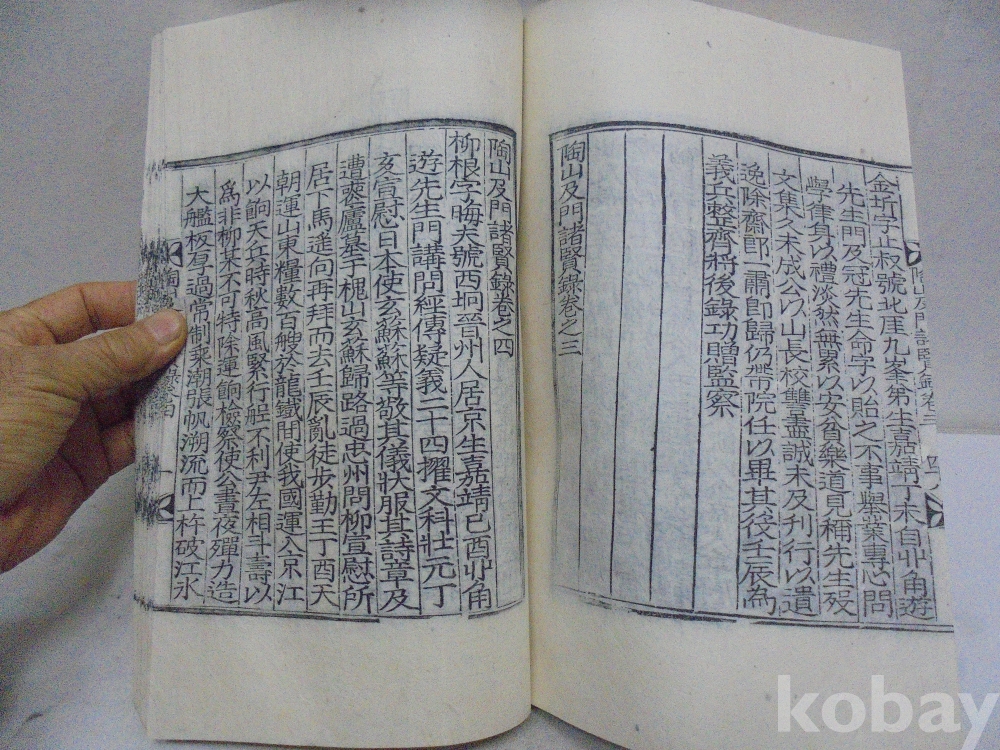 金圻字止叔號北崖九峯弟生嘉靖丁未自丱角遊
先生門及冠先生命字以貽之不事擧業專心問
學律身以禮淡然無累以安貧樂道見稱先生歿
文集久未成公以山長校讐盡誠未及刊行以遺
逸除齋郎肅卽歸仍帶院任以畢其役壬辰為
義兵整齊將後錄功贈監察
陶山及門諸賢錄卷之三
陶山及門諸賢錄卷之四
柳根字晦夫號西坰晉州人居京生嘉靖己酉丱角
遊先生門講問經傳疑義二十四擢文科壯元丁
亥宣慰日本使玄蘇等敬其儀狀服其詩章及
遭喪廬墓于槐山玄蘇歸路過忠州問柳宣慰所
居下馬遙向再拜而去壬辰亂徒步勤王丁酉天
朝運山東糧數百艘於龍鐵間使我國運入京江
以餉天兵時秋高風緊行船不利尹左相斗壽以
爲非柳某不可特除運餉檢察使公晝夜殫力造
大艦板厚過常制乘潮張帆溯流而上杵破江氷
kobay